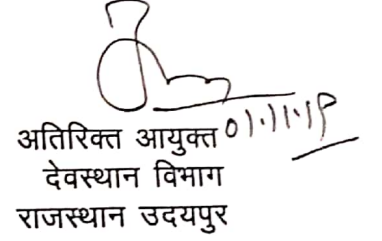 अतिरिक्त आयुक्त 01.11.19
देवस्थान विभाग
राजस्थान उदयपुर